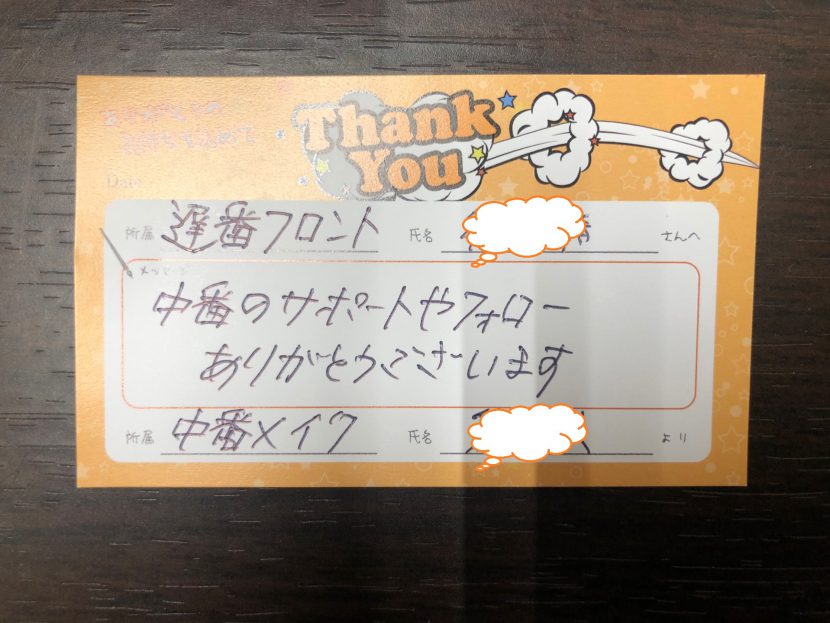 ありがとうの
気持ちを込めて
Thank
You
Date
所属 遅番フロント 氏名 さんへ
メッセージ
中番のサポートやフォロー
ありがとうございます
所属 中番メイク 氏名 より